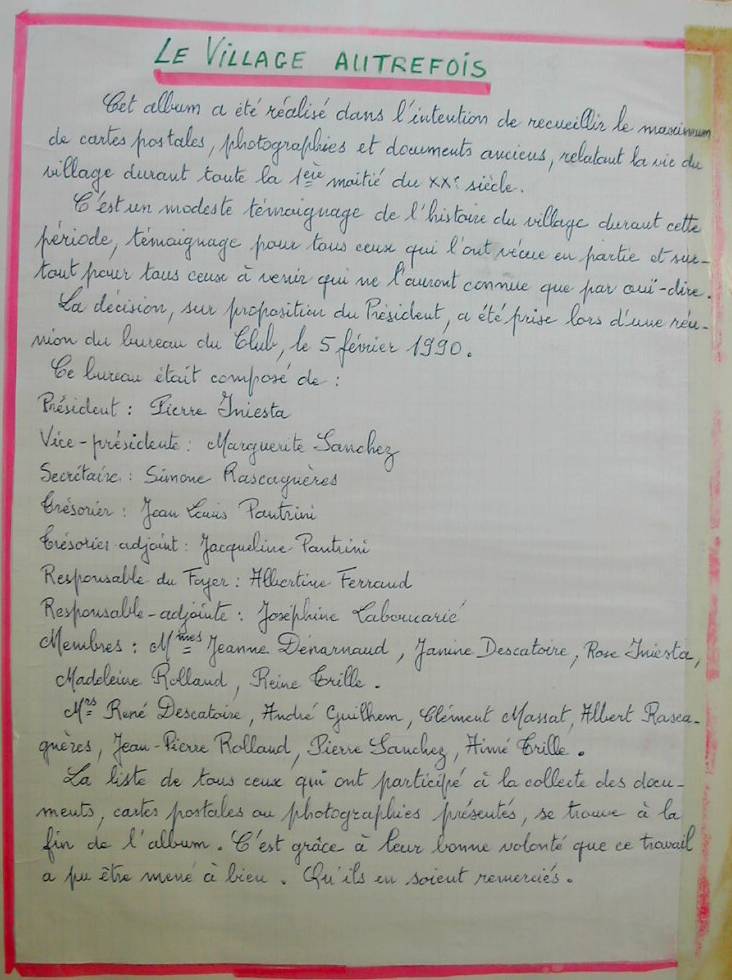 LE VILLAGE AUTREFOIS
Cet album a été réalisé dans l'intention de recueillir le maximum
de cartes postales, photographies et documents anciens, relatant la vie du
village durant toute la 1ère moitié du XXe siècle.
C'est un modeste témoignage de l'histoire du village durant cette
période, témoignage pour tous ceux qui l'ont vécue en partie et sur-
tout pour tous ceux à venir qui ne l'auront connue que par ouï-dire.
La décision, sur proposition du Président, a été prise lors d'une réu-
nion du bureau du Club, le 5 février 1990.
Ce bureau était composé de :
Président : Pierre Iniesta
Vice-présidente : Marguerite Sanchez
Secrétaire : Simone Rascagnères
Trésorier : Jean Louis Pautrini
Trésorier adjoint : Jacqueline Pautrini
Responsable du Foyer : Albertine Ferraud
Responsable-adjointe : Joséphine Laboucarié
Membres : Mmes Jeanne Dénarnaud, Janine Descatoire, Rose Iniesta,
Madeleine Rolland, Reine Trille.
Mrs René Descatoire, André Guilhem, Clément Massat, Albert Rasca-
gnères, Jean-Pierre Rolland, Pierre Sanchez, Aimé Trille.
La liste de tous ceux qui ont participé à la collecte des docu-
ments, cartes postales ou photographies présentés, se trouve à la
fin de l'album. C'est grâce à leur bonne volonté que ce travail
a pu être mené à bien. Qu'ils en soient remerciés.